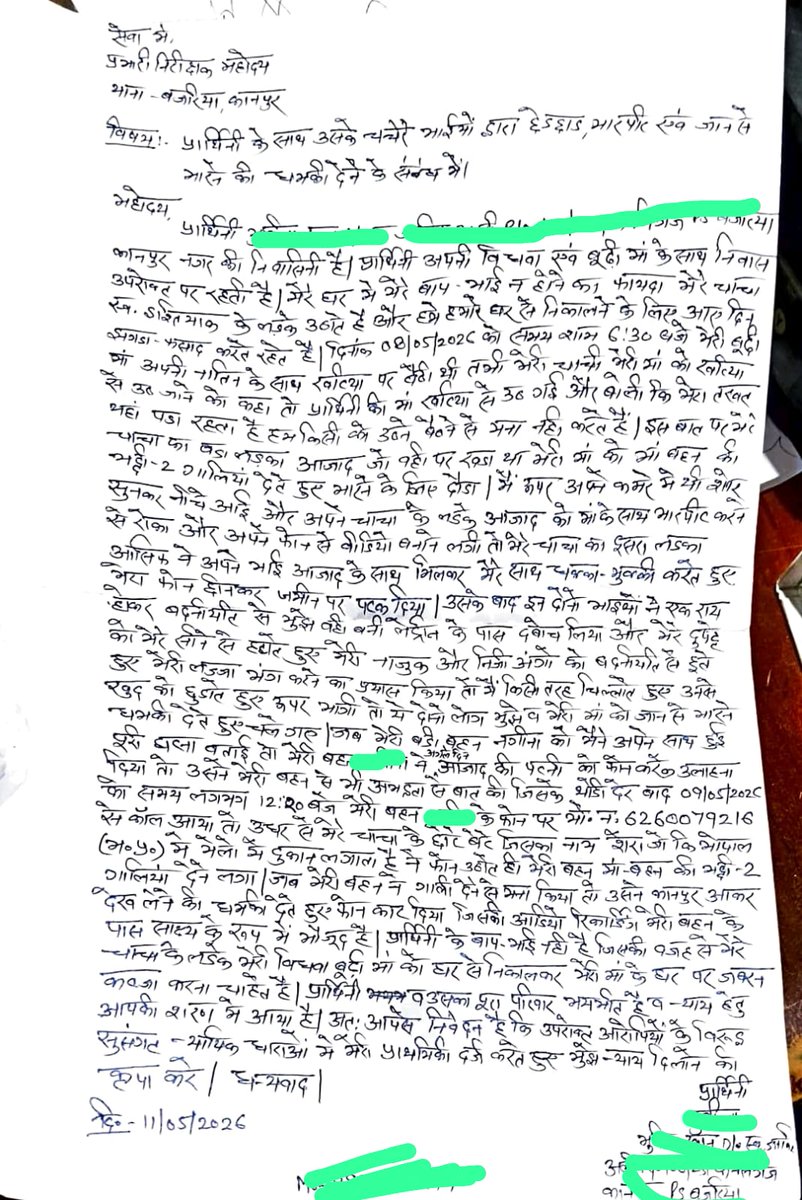 सेवा में,
प्रभारी निरीक्षक महोदय
थाना - बजरिया, कानपुर
विषय:- प्रार्थिनी के साथ उसके चचेरे भाईयों द्वारा छेडछाड, मारपीट एवं जान से
मारने की धमकी देने के संबंध में।
महोदय,
प्रार्थिनी
कानपुर नगर की निवासिनी है। प्रार्थिनी अपनी विधवा एवं बूढ़ी मां के साथ निवास
उपरोक्त पर रहती है। मेरे घर में मेरे बाप-भाई न होने का फायदा मेरे चाचा
स्व. के लडके उठाते है और हमे हमारे घर से निकालने के लिए आए दिन
झगडा-फसाद करते रहते है। दिनांक 08/05/2026 को समय शाम 6:30 बजे मेरी बूढ़ी
मां अपनी नातिन के साथ खटिया पर बैठी थी तभी मेरी चाची मेरी मां को खटिया
से उठ जाने को कहा तो प्रार्थिनी की मां खटिया से उठ गई और बोली कि मेरा तखत
यहां पडा रहता है हम किसी के उठने बैठने से मना नही करते है। इस बात पर मेरे
चाचा का बडा लडका आजाद जो वही पर खडा था मेरी मां को मां बहन की
भद्दी-2 गालियां देते हुए मारने के लिए दौडा। मैं ऊपर अपने कमरे में थी शोर
सुनकर नीचे आई और अपने चाचा के लडके आजाद को मां के साथ मारपीट करने
से रोका और अपने फोन से वीडियो बनाने लगी तो मेरे चाचा का दूसरा लडका
आसिफ ने अपने भाई आजाद के साथ मिलकर मेरे साथ धक्का-मुक्की करते हुए
मेरा फोन छीनकर जमीन पर पटक दिया। उसके बाद इन दोनो भाईयो ने एक राय
होकर बदनीयति से मुझे वही बनी लेट्रीन के पास दबोच लिया और मेरे दुपट्टे
को मेरे सीने से हटाते हुए मेरी नाजुक और निजी अंगो को बदनीयति से छूते
हुए मेरी लज्जा भंग करने का प्रयास किया तो मैं किसी तरह चिल्लाते हुए उनसे
खुद को छुडाते हुए ऊपर भागी तो ये दोनो लोग मुझे व मेरी मां को जान से मारने
धमकी देते हुए चले गए। जब मेरी बडी बहन नगीना को मैने अपने साथ हुई
पूरी घटना बताई तो मेरी बहन ने अगले दिन आजाद की पत्नी को फोन करके उलाहना
दिया तो उसने मेरी बहन से भी अभद्रता से बात की जिसके थोडी देर बाद 09/05/2026
को समय लगभग 12:20 बजे मेरी बहन के फोन पर मो. न. 6260079216
से कॉल आया तो उधर से मेरे चाचा के छोटे बेटे जिसका नाम शेरा जो कि भोपाल
(म०प्र०) में मेलो में दुकान लगाता है ने फोन उठाते ही मेरी बहन मां-बहन की भद्दी-2
गालियां देने लगा। जब मेरी बहन ने गाली देने से मना किया तो उसने कानपुर आकर
देख लेने की धमकी देते हुए फोन काट दिया जिसकी आडियो रिकार्डिंग मेरी बहन के
पास साक्ष्य के रूप में मौजूद है। प्रार्थिनी के बाप-भाई नही है जिसकी वजह से मेरे
चाचा के लडके मेरी विधवा बूढ़ी मां को घर से निकालकर मेरी मां के घर पर जबरन
कब्जा करना चाहते है। प्रार्थिनी व उसका पूरा परिवार भयभीत है व न्याय हेतु
आपकी शरण में आया है। अतः आपसे निवेदन है कि उपरोक्त आरोपियो के विरुद्ध
सुसंगत न्यायिक धाराओं में मेरी प्राथमिकी दर्ज करते हुए मुझे न्याय दिलाने की
कृपा करें। धन्यवाद।
दि०-11/05/2026
प्रार्थिनी